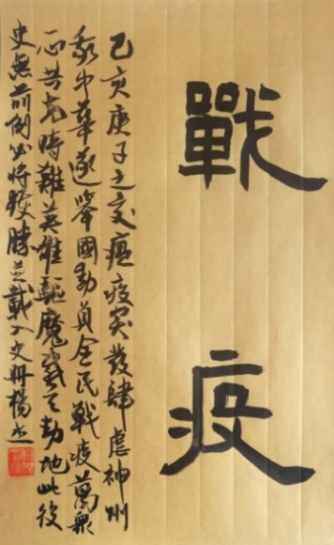 戰疫
己亥庚子之交瘟疫突發肆虐神州
我中華遂舉國動員全民戰疫萬衆
一心共克時難英雄驅魔驚天動地此役
史無前例必將獲勝並載入史冊楊